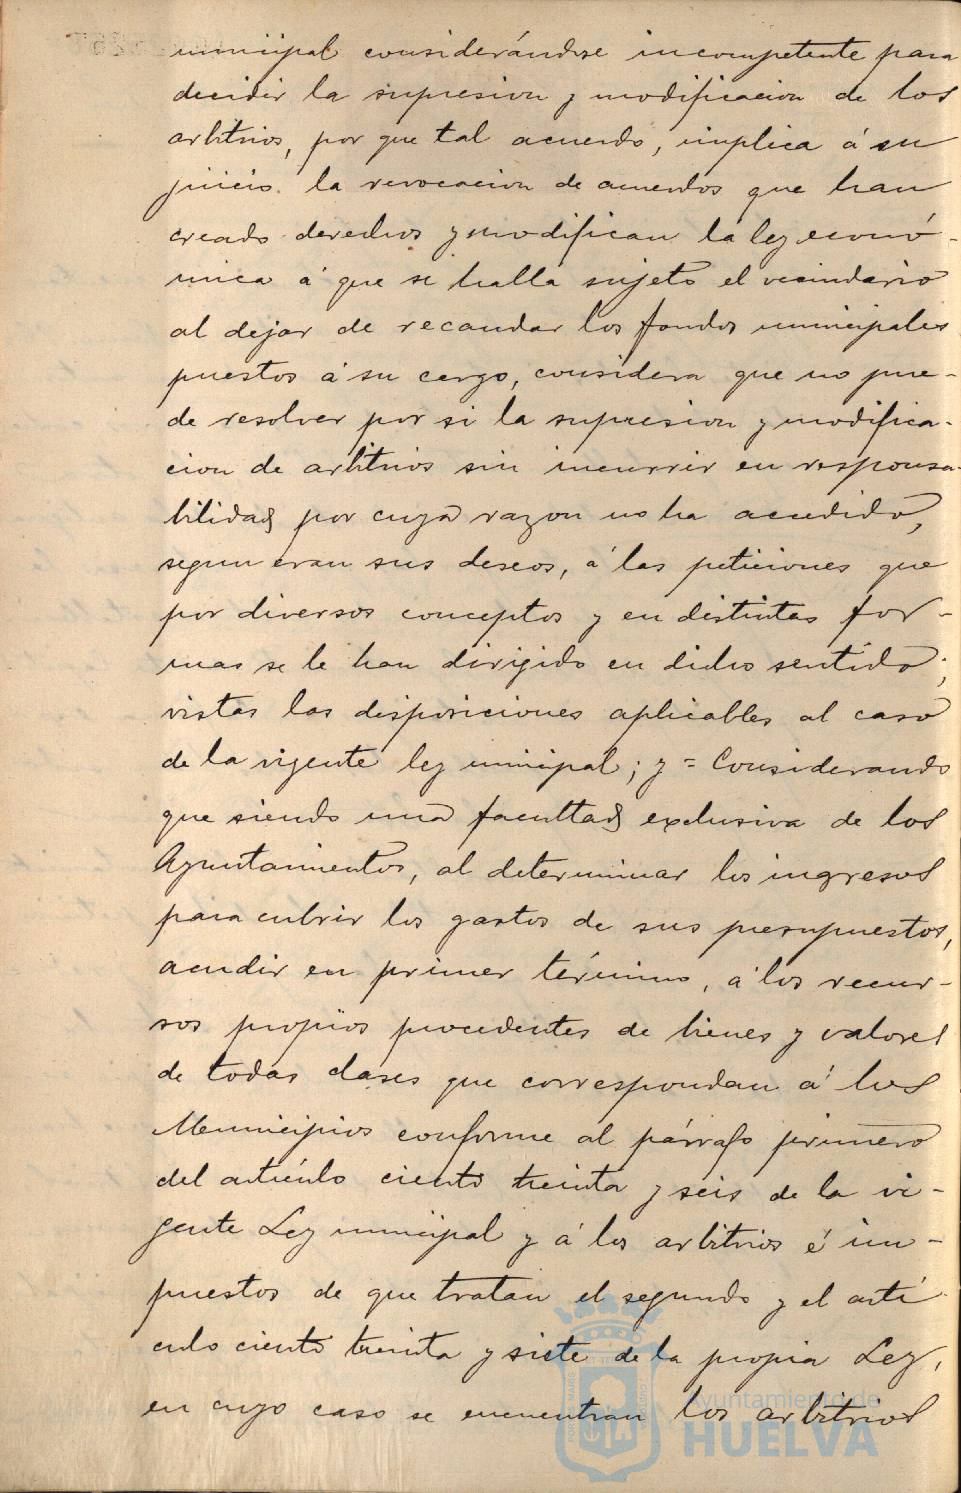 municipal considerándose incompetente para
decidir la supresion y modificacion de los
arbitrios, por que tal acuerdo, implica á su
juicio. la revocacion de acuerdos que han
creado derechos y modifican la ley econó-
mica á que se halla sujeto el vecindario
al dejar de recaudar los fondos municipales
puestos á su cargo, considera que no pue-
de resolver por si la supresion y modifica-
cion de arbitrios sin incurrir en responsa-
bilidad por cuya razon no ha accedido,
segun eran sus deseos, á las peticiones que
por diversos conceptos y en distintas for-
mas se le han dirigido en dicho sentido;
vistas las disposiciones aplicables al caso
de la vigente ley municipal; y = Considerando
que siendo una facultad exclusiva de los
Ayuntamientos, al determinar los ingresos
para cubrir los gastos de sus presupuestos,
acudir en primer término, á los recur-
sos propios procedentes de bienes y valores
de todas clases que correspondan á los
Municipios conforme al párrafo primero
del artículo ciento treinta y seis de la vi-
gente Ley municipal y á los arbitrios é im-
puestos de que tratan el segundo y el artí
culo ciento treinta y siete de la propia Ley,
en cuyo caso se encuentran los arbitrios
Ayuntamiento de
HUELVA